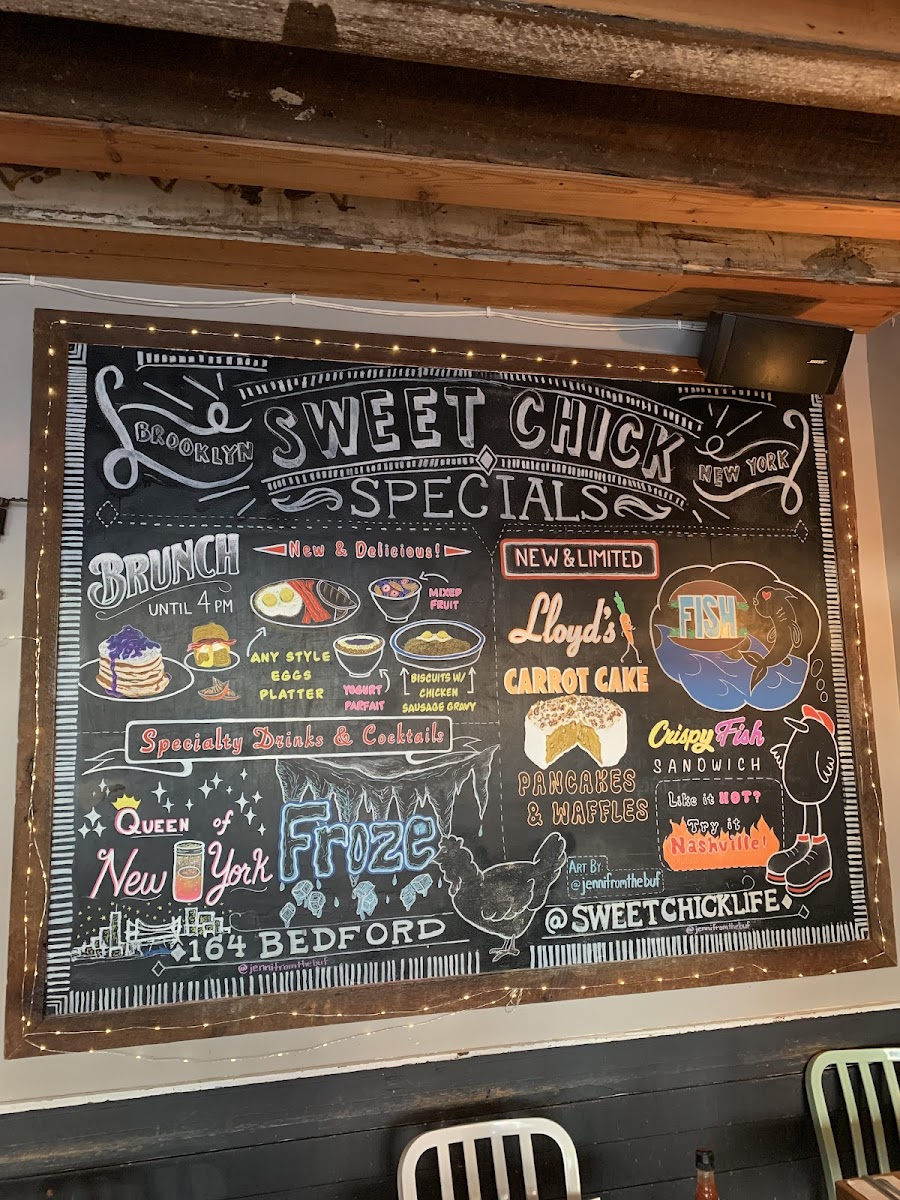 BROOKLYN
SWEET CHICK
NEW YORK
SPECIALS
BRUNCH
UNTIL 4 PM
New & Delicious!
MIXED
FRUIT
ANY STYLE
EGGS
PLATTER
YOGURT
PARFAIT
BISCUITS W/
CHICKEN
SAUSAGE GRAVY
Specialty Drinks & Cocktails
QUEEN of
New York
Froze
164 BEDFORD
@jennifromthebuf
NEW & LIMITED
Lloyd's
CARROT CAKE
PANCAKES
& WAFFLES
FISH
Crispy Fish
SANDWICH
Like it HOT?
Try it
Nashville!
ART BY
@jennifromthebuf
@SWEETCHICKLIFE
@jennifromthebuf
BOSE